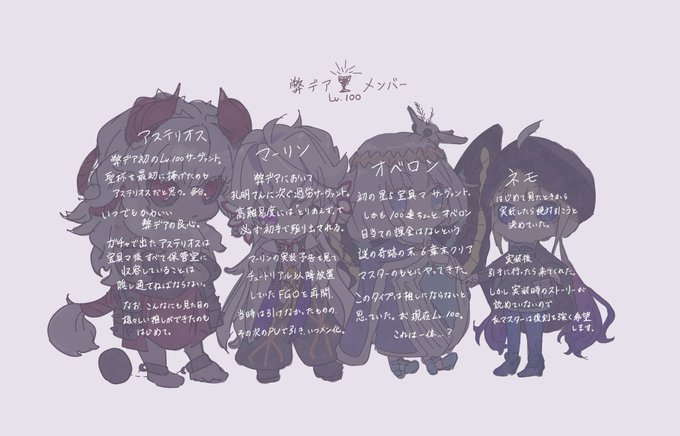 弊デア メンバー
Lv.100
アステリオス
弊デア初のLv.100サーヴァント。
聖杯を最初に捧げたのも
アステリオスだと思う。多分。
いつでもかわいい
弊デアの良心。
ガチャで出たアステリオスは
宝具5後すべて保管室に
収容していることは
誰も通てねばならない。
なお、こんなにも見た目の
雄々しい推しができたのも
はじめて。
マーリン
弊デアにおいて
孔明さんに次ぐ過労サーヴァント。
高難易度にはとりあえず、で
必ず初手で駆り上される。
マーリンの実装予告を見て
チュートリアル以降放置
していたFGOを再開。
当時は引けなかったものの、
その次のPUで引き、いつメン化。
オベロン
初の星5宝具マサーヴァント。
しかも100連ちょっと、オベロン
目当ての課金はなしという
謎の奇跡の末、6章未クリア
マスターのもとにやってきた。
このタイプは推しにならないと
思っていた。が現在Lv.100。
これは一体…?
ネモ
はじめて見たときから
実装したら絶対引こうと
決めていた。
実装後
引きに行ったら来てくれた
しかし実装時のストーリーが
読めていないので
私マスターは復刻を強く希望
します。